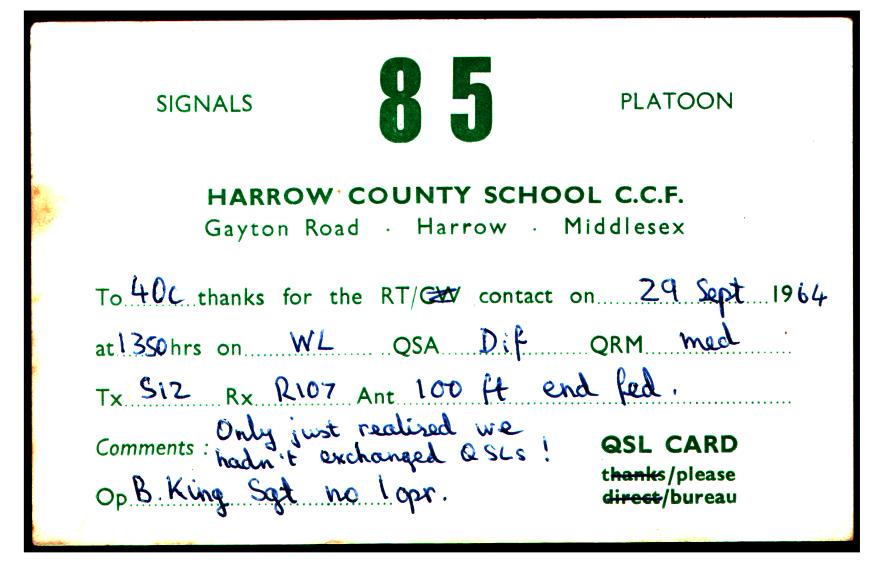 SIGNALS 85 PLATOON
HARROW COUNTY SCHOOL C.C.F.
Gayton Road · Harrow · Middlesex
To 40C thanks for the RT/CW contact on 29 Sept 1964
at 1350 hrs on WL QSA Dif QRM med
Tx S12 Rx R107 Ant 100 ft end fed.
Comments: Only just realised we
hadn't exchanged QSLs!
Op B. King Sgt no 1 opr.
QSL CARD
thanks/please
direct/bureau